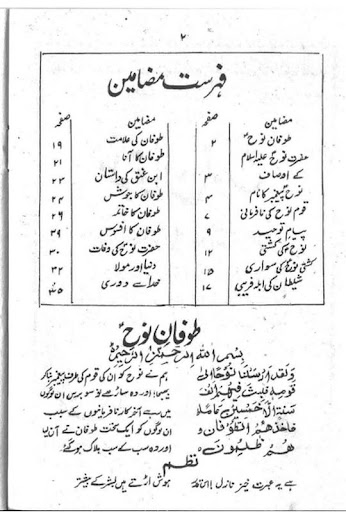 ۲
فہرست مضامین
مضامین صفحہ
طوفانِ نوحؑ ۲
حضرت نوح علیہ السلام
کے اوصاف ۳
نوحؑ پیغمبر کا نام ۴
قوم نوح کی نافرمانی ۷
پیام توحید ۹
نوحؑ کی کشتی ۱۲
کشتی نوحؑ کی سواری ۱۵
شیطان کی ابلہ فریبی ۱۷
مضامین صفحہ
طوفان کی علامت ۱۹
طوفان کا آنا ۲۱
ابن عنق کی داستان ۲۳
طوفان کا جوش ۲۴
طوفان کا خاتمہ ۲۶
طوفان کا افسوس ۲۹
حضرت نوحؑ کی وفات ۳۰
دنیا اور مولا ۳۲
خدا سے دوری ۳۵
طوفان نوحؑ
بِسْمِ اللهِ الرَّحْمٰنِ الرَّحِيْمِ
وَلَقَدْ اَرْسَلْنَا نُوْحًا اِلٰى
قَوْمِهٖ فَلَبِثَ فِيْهِمْ اَلْفَ
سَنَةٍ اِلَّا خَمْسِيْنَ عَامًا
فَاَخَذَهُمُ الطُّوْفَانُ وَ
هُمْ ظٰلِمُوْنَ
ہم نے نوح کو ان کی قوم کی طرف پیغمبر بنا کر
بھیجا اور وہ ساڑھے نو سو برس ان لوگوں
میں رہے آخر کار نافرمانیوں کے سبب
ان لوگوں کو ایک سخت طوفان نے آن لیا
اور وہ سب کے سب ہلاک ہو گئے
نظم
ہے یہ عبرت خیز نازل واقعہ ہوش اڑتے ہیں بشر کے بیشتر